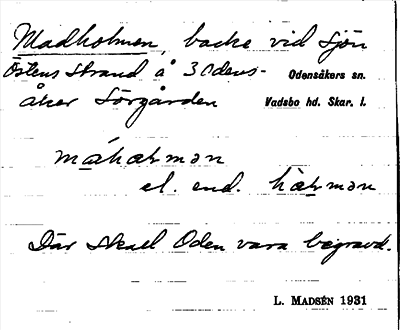 Madholmen, backe vid sjön
Östens strand å 3 Odens-
Odensåkers sn.
åker Sörgården
Vadsbo hd. Skar. l.
el. end.
Där skall Oden vara begravd.
L. MADSÉN 1931